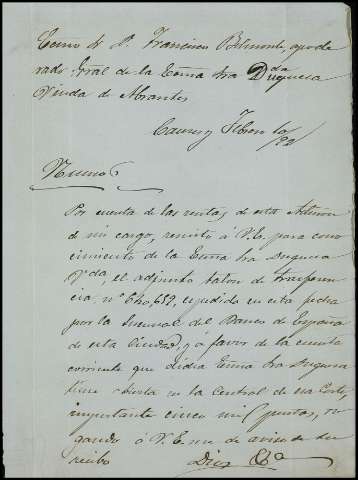 Excmo Sr D. Francisco Belmonte, apode
rado Gral de la Exma Sra Duquesa
Viuda de Abrantes
Caceres Febrero 10/92
Por cuenta de las rentas de esta Admon
de mi cargo, remito á V.E. para cono
cimiento de la Exma Sra Duquesa
Vda, el adjunto talon de trasferen
cia, nº 640,652, expedido en esta fecha
por la Sucursal del Banco de España
de esta Ciudad, y a favor de la cuenta
corriente que dicha Exma Sra Duquesa
tiene abierta en la Central de esa Corte,
importante cinco mil pesetas, ro
gando á V.E. me de aviso de su
recibo Dios &a